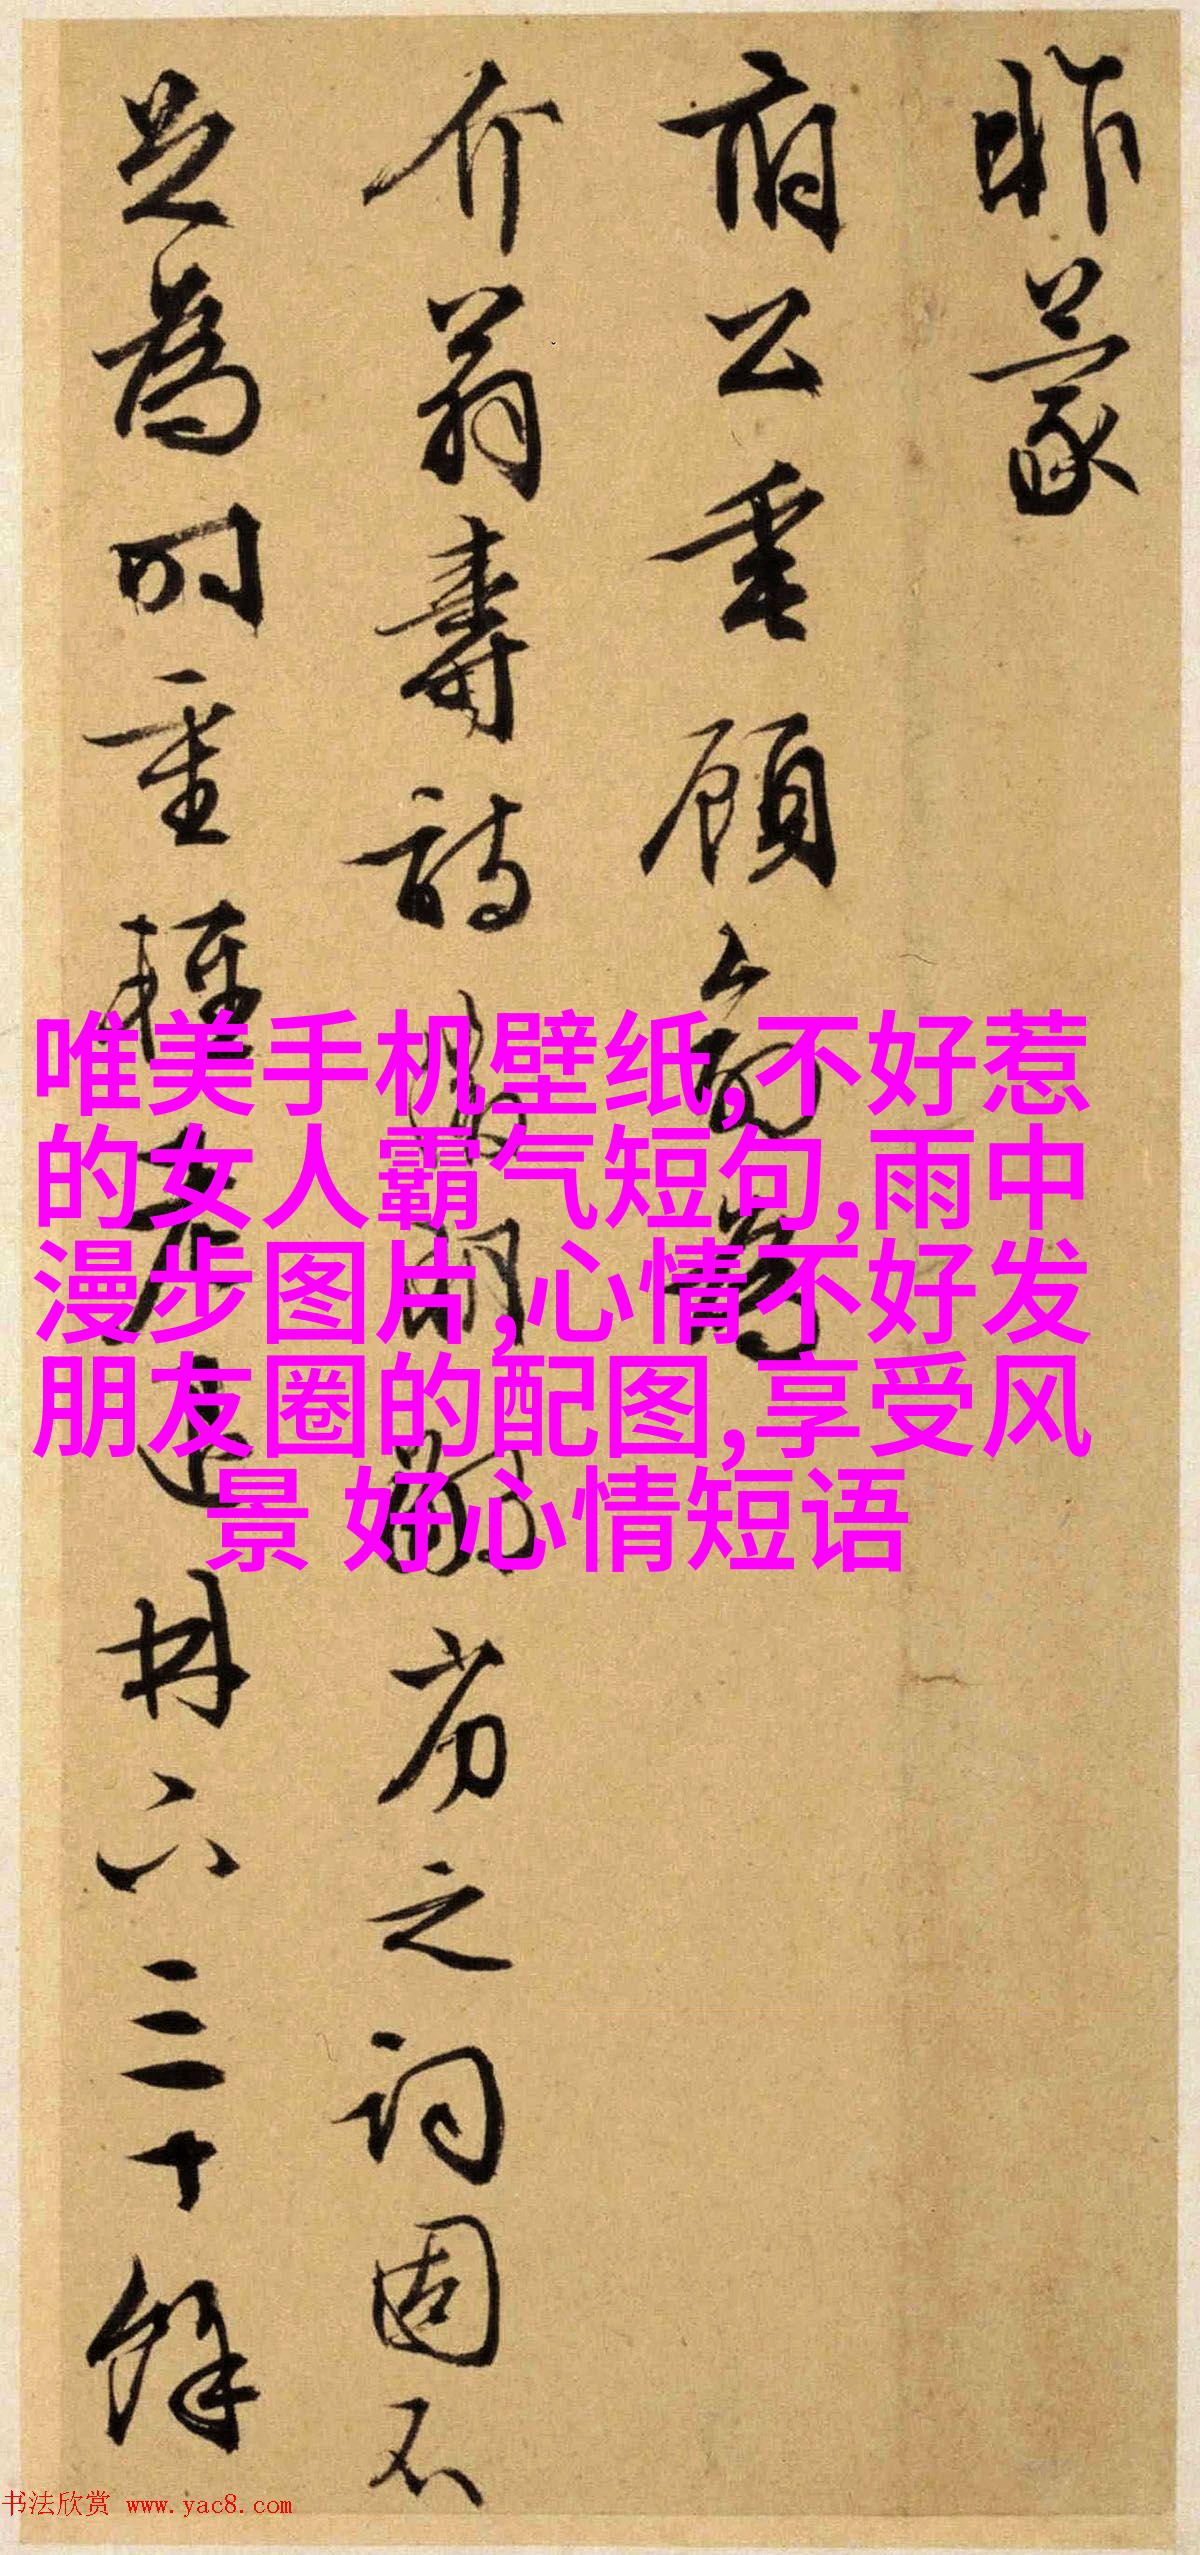 昨蒙
府公垂顧命為
介翁壽詩之詞固不
足為時重輕六三十餘
唯美手机壁纸,不好惹
的女人霸气短句,雨中
漫步图片,心情不好发
朋友圈的配图,享受风
景 好心情短语
书法欣赏 www.yac8.com